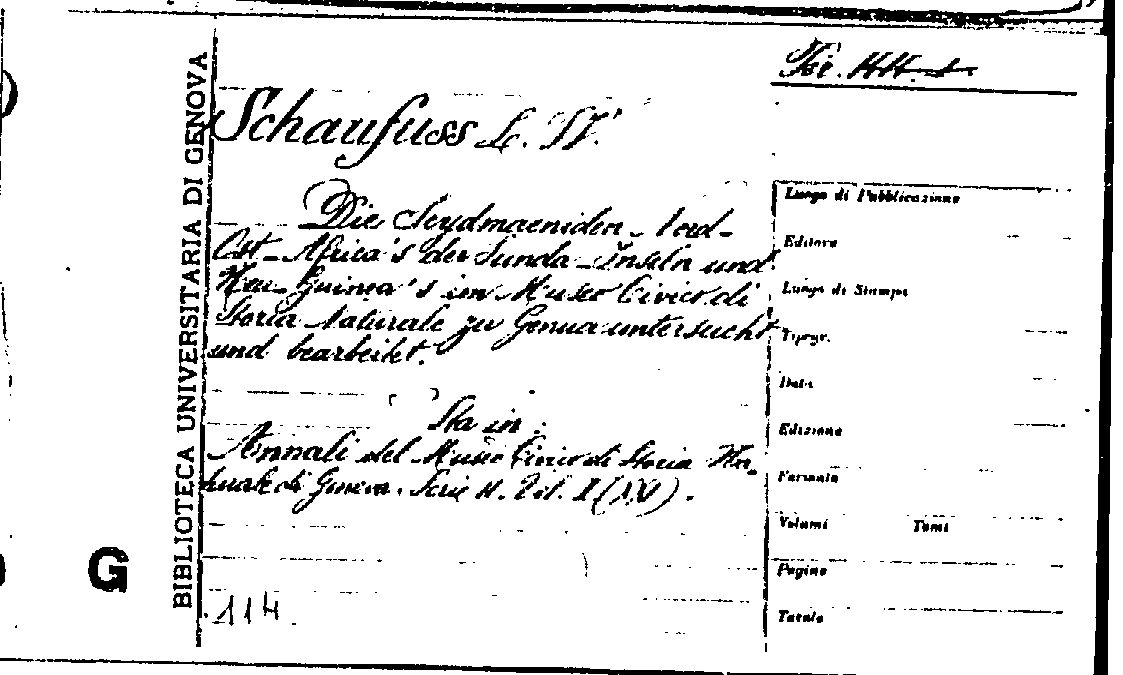 BIBLIOTECA UNIVERSITARIA DI GENOVA
Schaufuss L. W.
Die Scydmaeniden Nord-
Ost-Africa's der Sunda-Inseln und
Neu-Guinea's im Museo Civico di
Storia Naturale zu Genua untersucht
und bearbeitet.
Sta in:
Annali del Museo Civico di Storia Na-
turale di Genova. Serie II. Vol. I (XXI).
114
Luogo di Pubblicazione
Editore
Luogo di Stampa
Tipogr.
Data
Edizione
Formato
Volumi Tomi
Pagine
Tavole
G